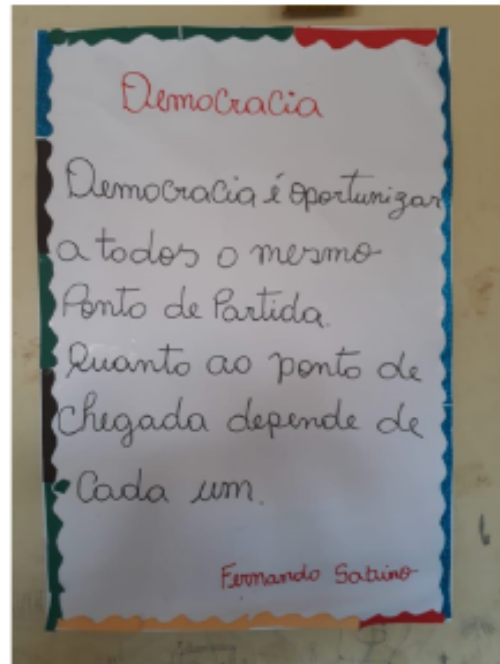 Democracia
Democracia é oportunizar
a todos o mesmo
Ponto de Partida.
Quanto ao ponto de
chegada depende de
Cada um.
Fernando Sabino